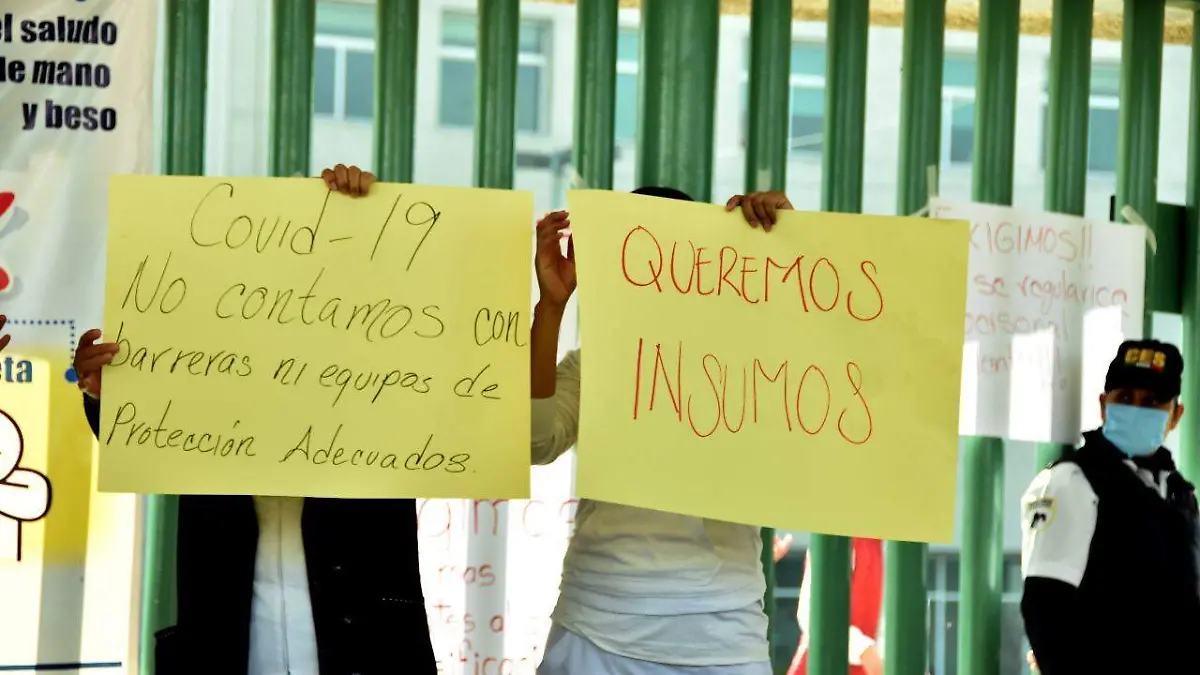 el saludo
de mano
y beso
Covid-19
No contamos con
barreras ni equipos de
Protección Adecuados.
QUEREMOS
INSUMOS
EXIGIMOS!!
se regularice
personal